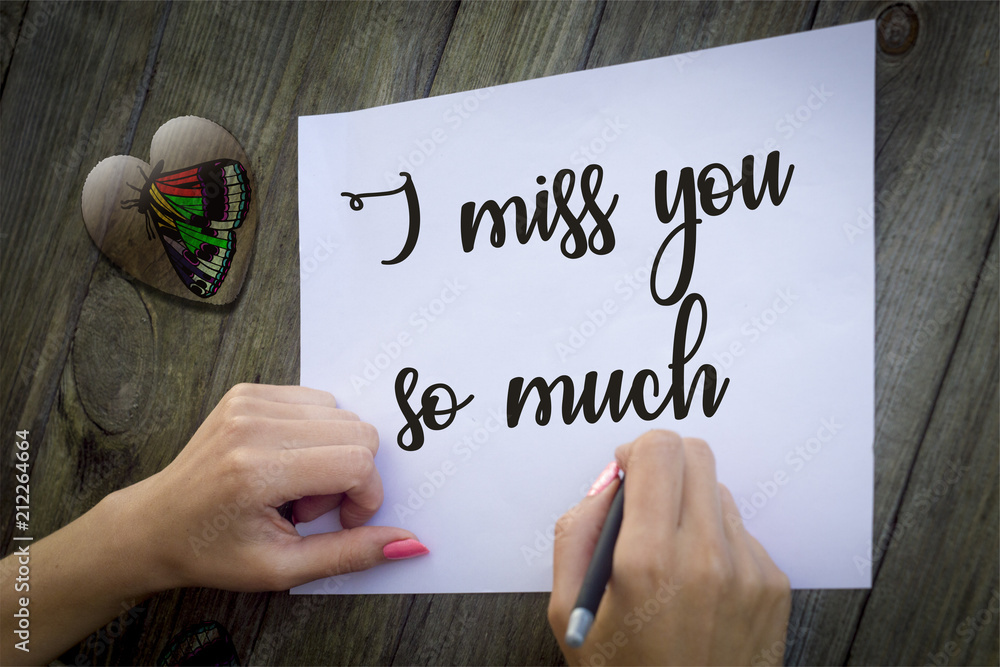 I miss you
so much
Adobe Stock | #212264664